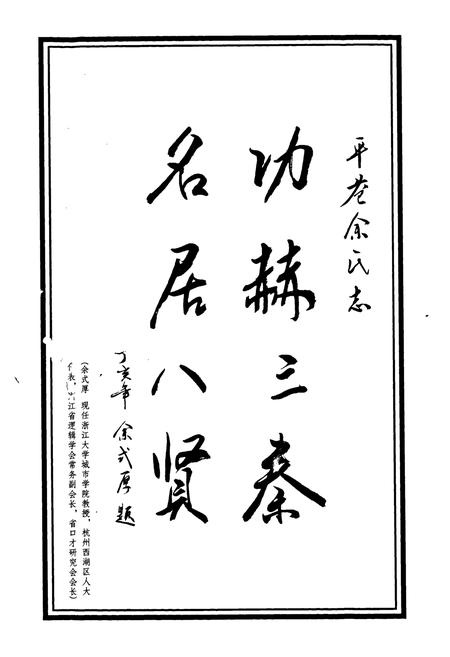 平苍余氏志
功赫三秦
名居八贤
丁亥年 余式厚题
(余式厚 现任浙江大学城市学院教授，杭州西湖区人大
代表，浙江省逻辑学会常务副会长，省口才研究会会长)